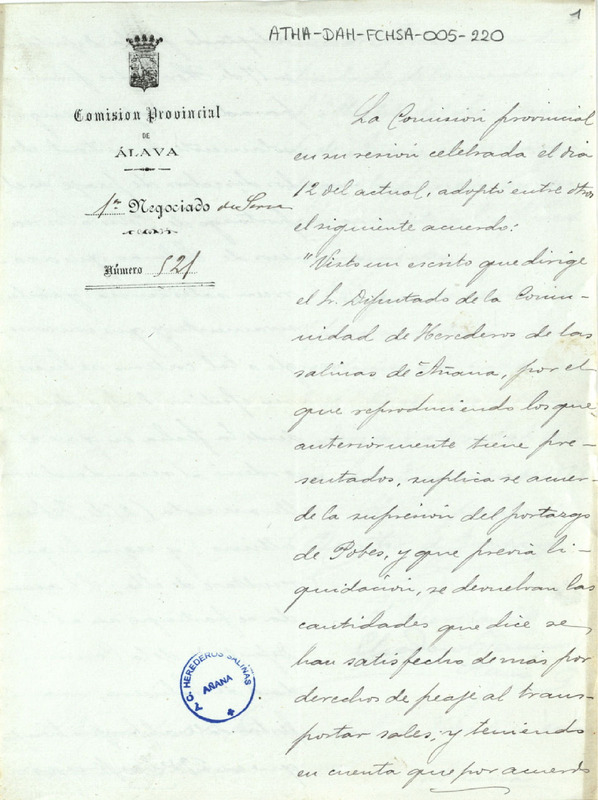 1
ATHA-DAH-FCHSA-005-220
Comision Provincial
DE
ÁLAVA
1er Negociado
Número 521
La Comisión provincial
en su sesión celebrada el dia
12 del actual, adoptó entre otros
el siguiente acuerdo:
"Visto un escrito que dirige
el Sr. Diputado de la Comu-
nidad de Herederos de las
salinas de Añana, por el
que reproduciendo los que
anteriormente tiene pre-
sentados, suplica se acuer-
de la supresión del portazgo
de Pobes, y que previa li-
quidación, se devuelvan las
cantidades que dice se
han satisfecho demás por
derechos de peaje al trans-
portar sales, y teniendo
en cuenta que por acuerdo
C. HEREDEROS SALINAS
AÑANA